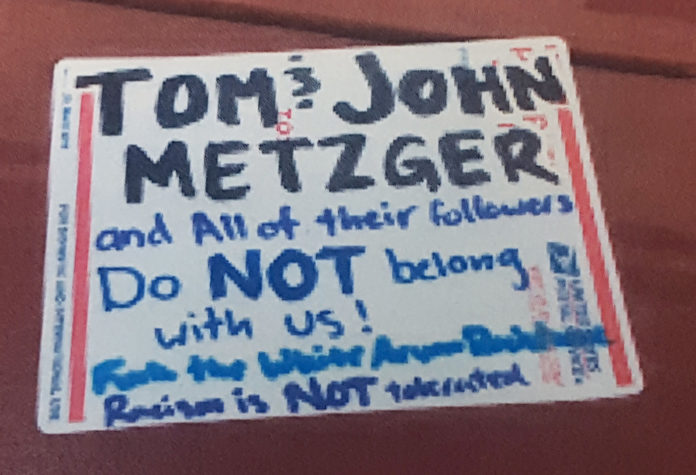 TOM & JOHN
METZGER
and All of their followers
Do NOT belong
with US!
the White
Racism is NOT tolerated